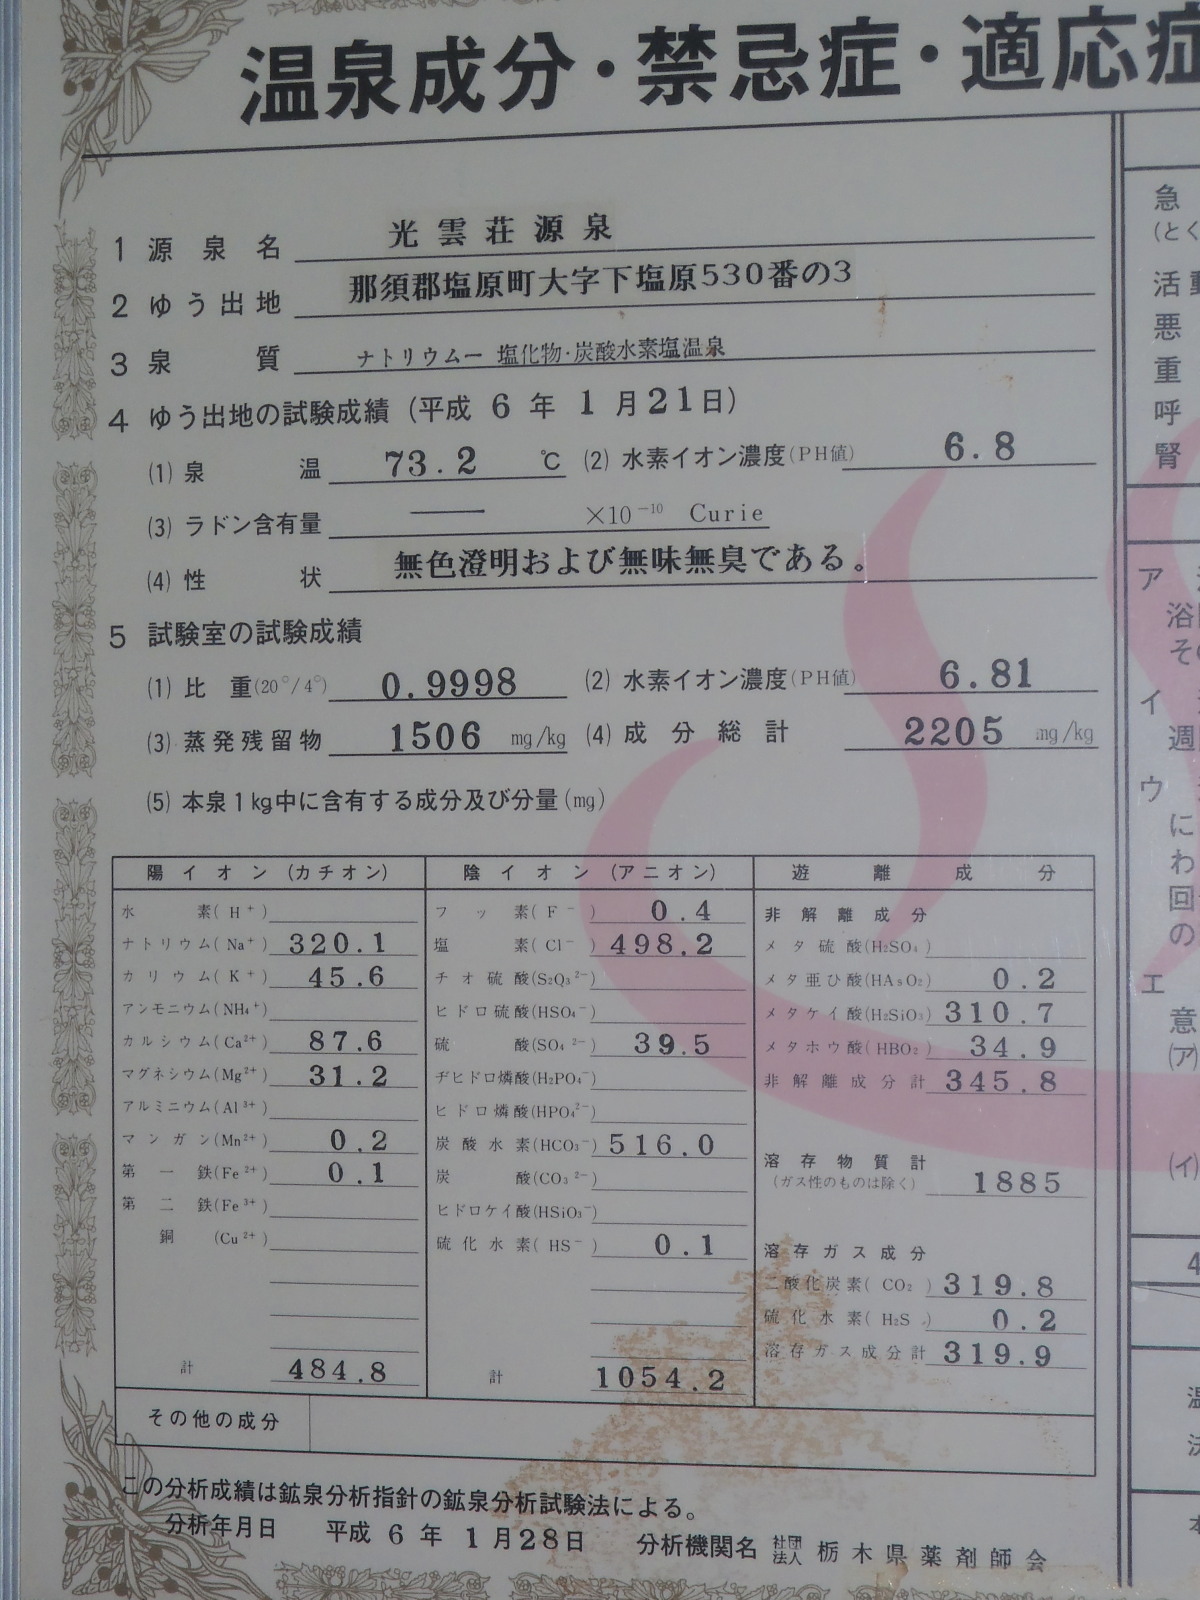 温泉成分・禁忌症・適応症
1 源泉名 光雲荘源泉
2 ゆう出地 那須郡塩原町大字下塩原530番の3
3 泉質 ナトリウムー塩化物・炭酸水素塩温泉
4 ゆう出地の試験成績(平成6年1月21日)
(1) 泉温 73.2 ℃ (2) 水素イオン濃度(PH値) 6.8
(3) ラドン含有量 ― ×10⁻¹⁰ Curie
(4) 性状 無色澄明および無味無臭である。
5 試験室の試験成績
(1) 比重(20°/4°) 0.9998 (2) 水素イオン濃度(PH値) 6.81
(3) 蒸発残留物 1506 mg/kg (4) 成分総計 2205 mg/kg
(5) 本泉1kg中に含有する成分及び分量(mg)
陽イオン(カチオン)
水素(H⁺)
ナトリウム(Na⁺) 320.1
カリウム(K⁺) 45.6
アンモニウム(NH₄⁺)
カルシウム(Ca²⁺) 87.6
マグネシウム(Mg²⁺) 31.2
アルミニウム(Al³⁺)
マンガン(Mn²⁺) 0.2
第一鉄(Fe²⁺) 0.1
第二鉄(Fe³⁺)
銅(Cu²⁺)
計 484.8
陰イオン(アニオン)
フッ素(F⁻) 0.4
塩素(Cl⁻) 498.2
チオ硫酸(S₂O₃²⁻)
ヒドロ硫酸(HSO₄⁻)
硫酸(SO₄²⁻) 39.5
ヂヒドロ燐酸(H₂PO₄⁻)
ヒドロ燐酸(HPO₄²⁻)
炭酸水素(HCO₃⁻) 516.0
炭酸(CO₃²⁻)
ヒドロケイ酸(HSiO₃⁻)
硫化水素(HS⁻) 0.1
計 1054.2
遊離成分
非解離成分
メタ硫酸(H₂SO₄)
メタ亜ひ酸(HAsO₂) 0.2
メタケイ酸(H₂SiO₃) 310.7
メタホウ酸(HBO₂) 34.9
非解離成分計 345.8
溶存物質計
(ガス性のものは除く) 1885
溶存ガス成分
二酸化炭素(CO₂) 319.8
硫化水素(H₂S) 0.2
溶存ガス成分計 319.9
その他の成分
この分析成績は鉱泉分析指針の鉱泉分析試験法による。
分析年月日 平成6年1月28日 分析機関名 社団法人 栃木県薬剤師会
急
(とく
活動
悪
重
呼
腎
ア
浴
そ
イ
週
ウ
に
わ
回
の
エ
意
(ア)
(イ)
4
温